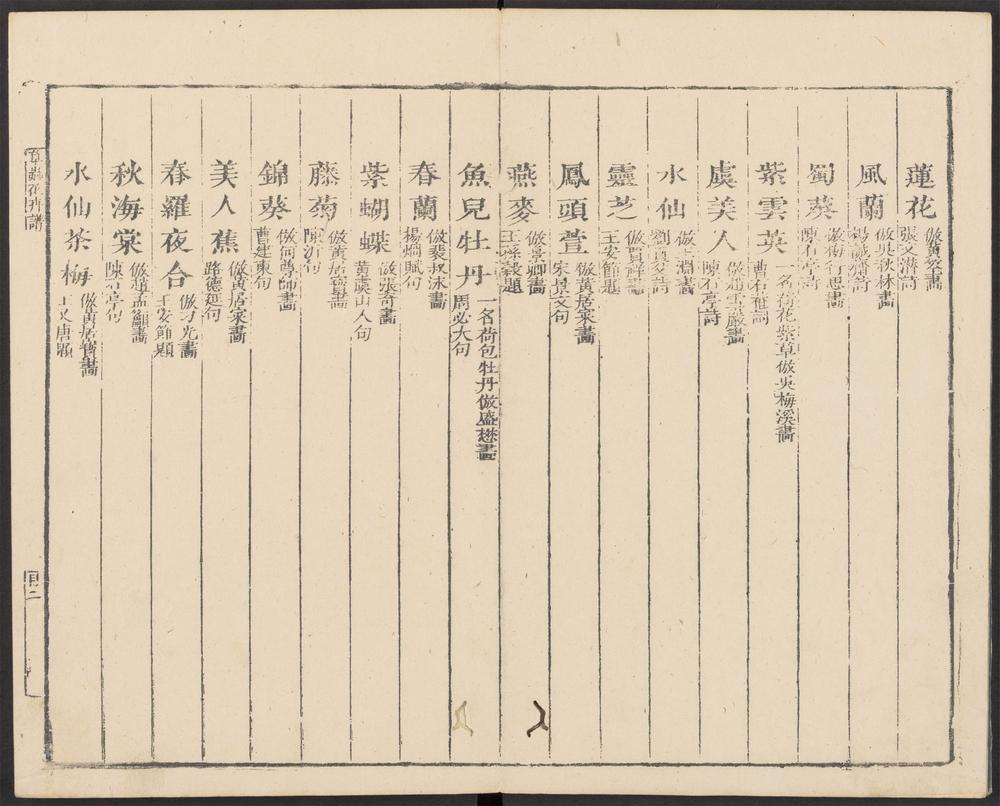 蓮花 倣黃筌畫
張文潛詩
風蘭 倣吳秋林畫
楊誠齋詩
蜀葵 倣 行思畫
陳石亭詩
紫雲英 一名荷花紫草倣吳梅溪畫
曹石 詞
虞美人 倣趙雪巖畫
陳石亭詩
水仙 倣 淵畫
劉貢父詩
靈芝 倣賈祥畫
王安節題
鳳頭萱 倣黃居寀畫
宋景文句
燕麥 倣 景卿畫
王孫穀題
魚兒牡丹 一名荷包牡丹倣盛懋畫
周必大句
春蘭 倣裴叔泳畫
楊炯賦句
紫蝴蝶 倣張奇畫
黃虞山人句
藤菊 倣黃居寶畫
陳沂句
錦葵 倣何尊師畫
曹建東句
美人蕉 倣黃居寀畫
路德延句
春羅夜合 倣刁光畫
王安節題
秋海棠 倣趙孟籲畫
陳石亭句
水仙茶梅 倣黃居寶畫
唐題
草蟲花卉譜
目二